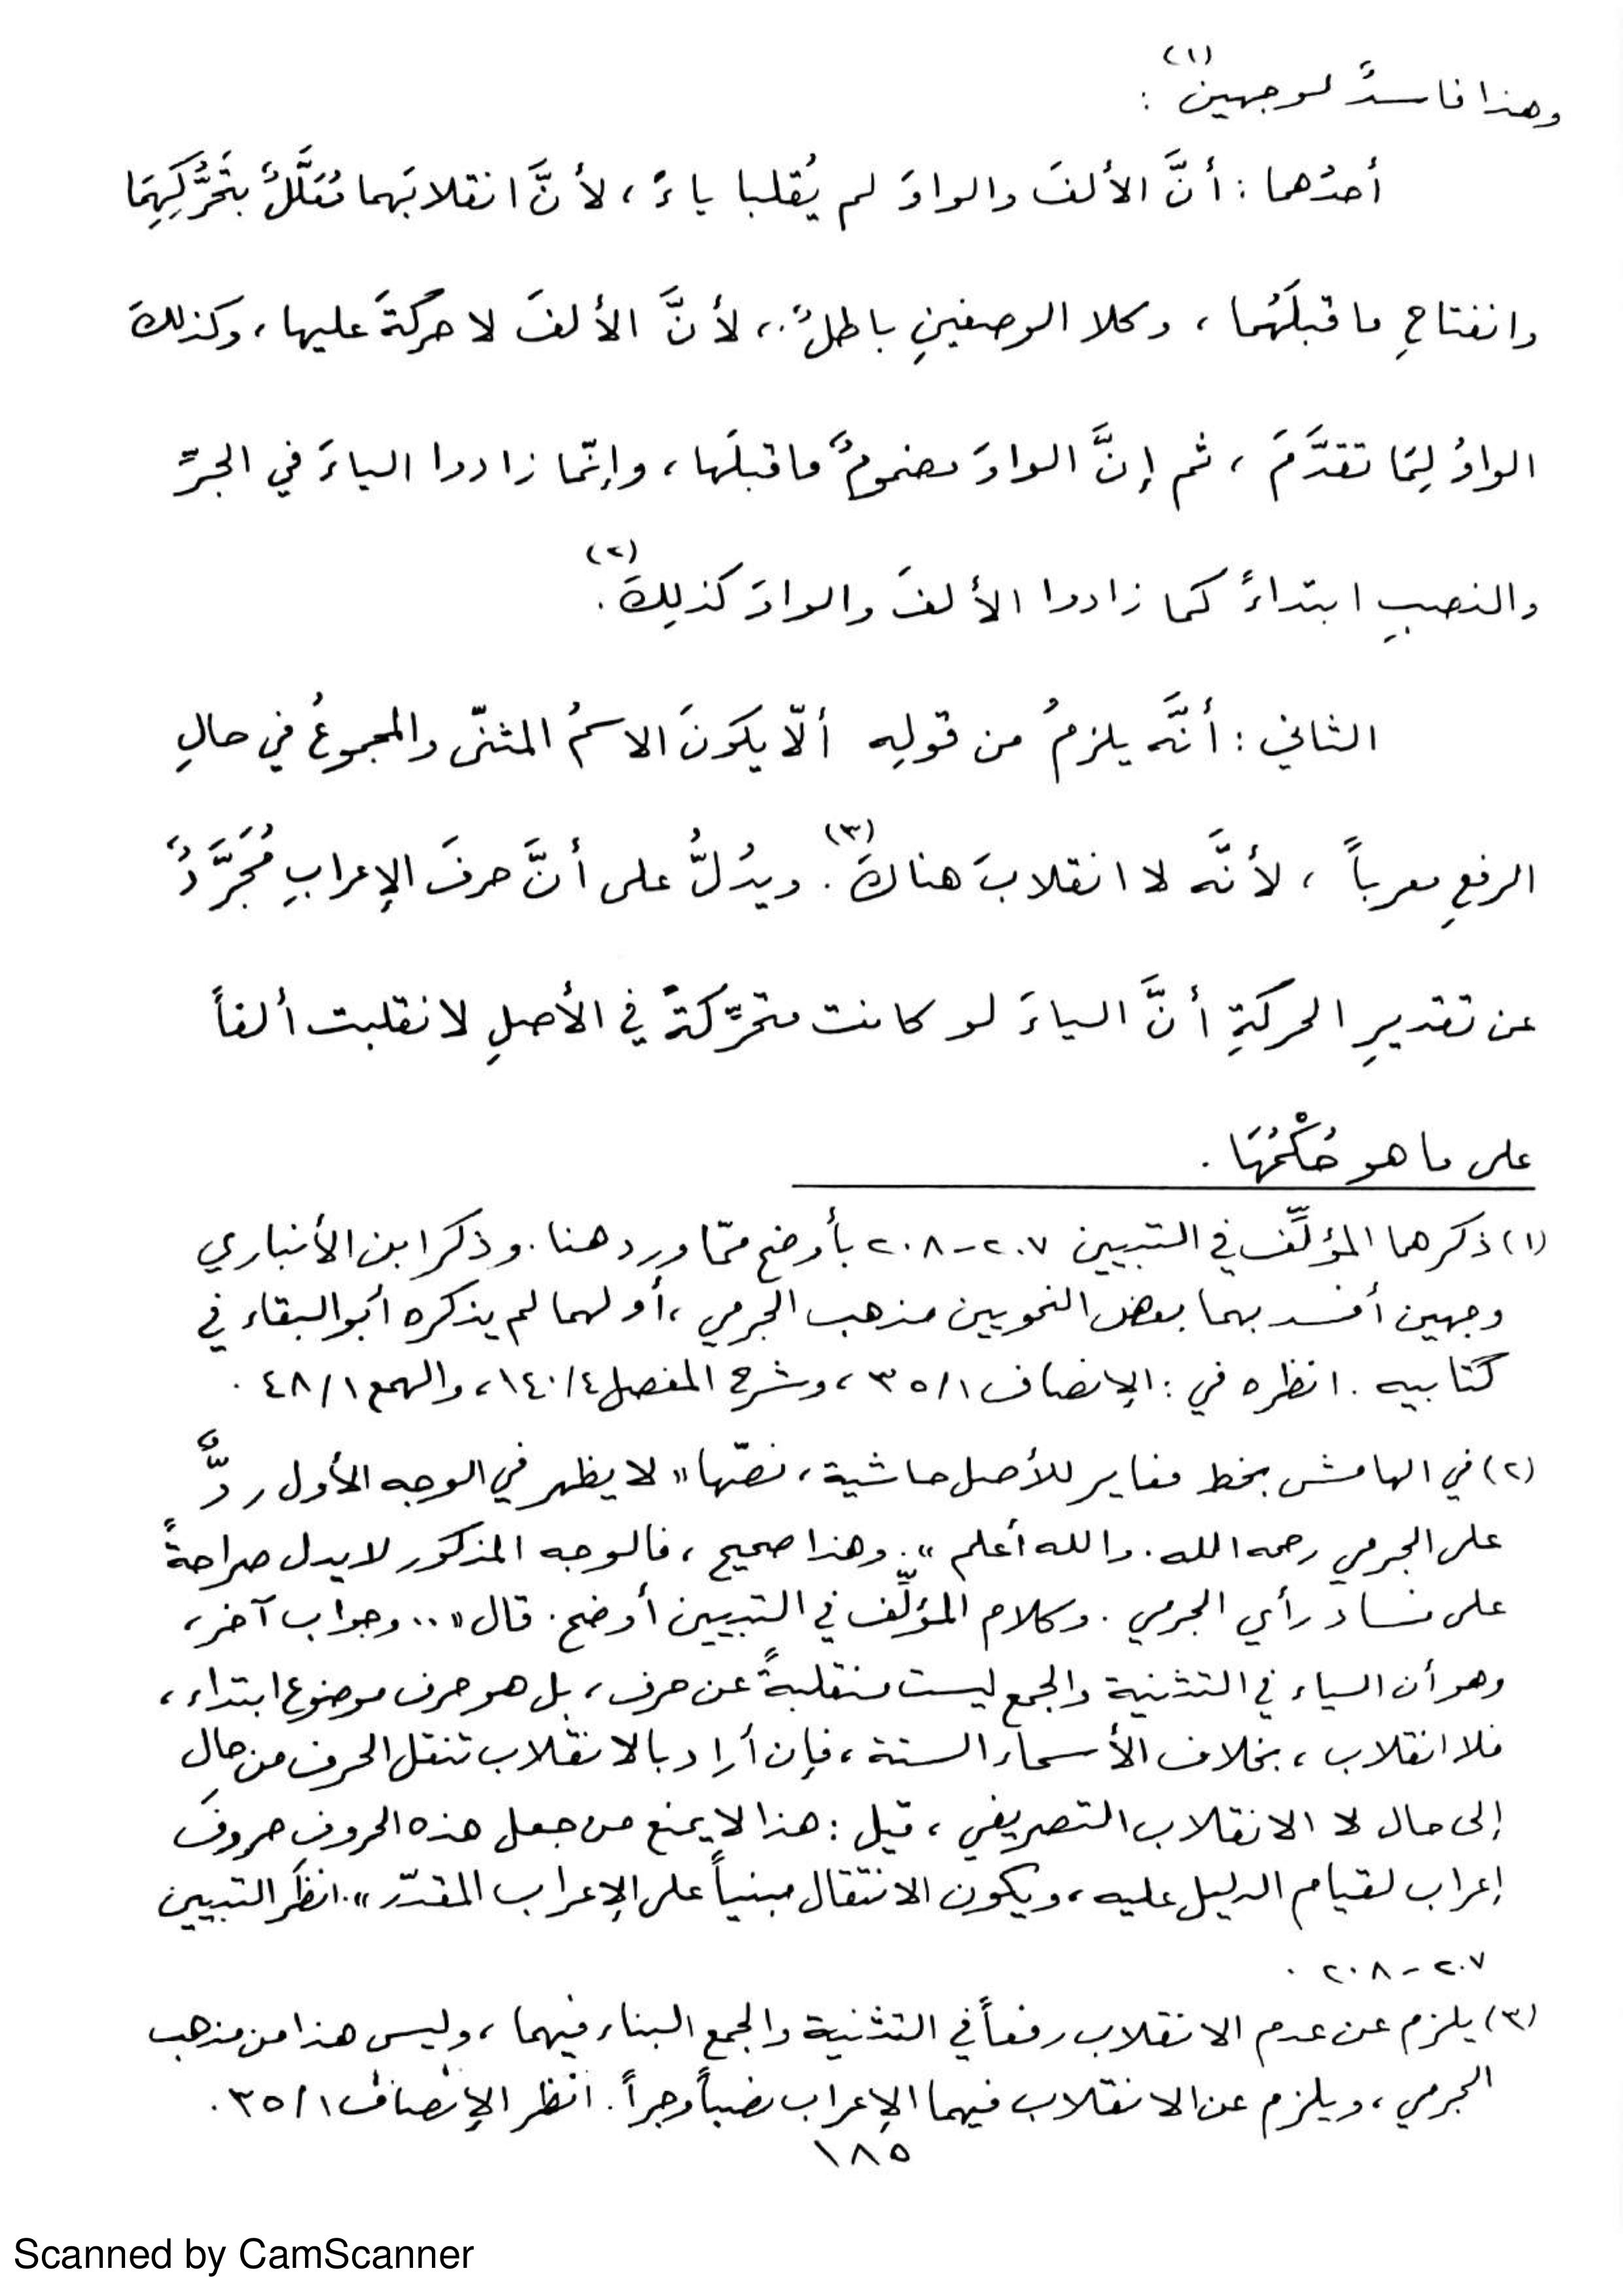 وهذا فاسدٌ لوجهين(١) :
أحدُهما : أنَّ الألفَ والواوَ لم يُقلبا ياءً ، لأنَّ انقلابَهما مُعَلَّلٌ بتَحَرُّكِهِمَا
وانفتاحِ ما قبلَهُما ، وكلا الوصفينِ باطلٌ ، لأنَّ الألفَ لا حركةَ عليها ، وكذلكَ
الواوُ لِمَا تقدَّمَ ، ثم إنَّ الواوَ مضمومٌ ما قبلَها ، وإنّما زادوا الياءَ في الجرِّ
والنصبِ ابتداءً كما زادوا الألفَ والواوَ كذلِكَ(٢) .
الثاني : أنَّه يلزمُ من قولِه ألّا يكونَ الاسمُ المثنّى والمجموعُ في حالِ
الرفعِ معرباً ، لأنَّه لا انقلابَ هناكَ(٣) . ويدُلُّ على أنَّ حرفَ الإعرابِ مُجَرَّدٌ
عن تقديرِ الحركةِ أنَّ الياءَ لو كانت متحرِّكةً في الأصلِ لانقلبت ألفاً
على ما هو حُكْمُهَا .
(١) ذكرهما المؤلِّف في التبيين ٢٠٧-٢٠٨ بأوضح ممّا ورد هنا . وذكر ابن الأنباري
وجهين أفسد بهما بعض النحويين مذهب الجرمي ، أولهما لم يذكره أبو البقاء في
كتابيه . انظره في : الإنصاف ٣٥/١ ، وشرح المفصل ١٤٠/٤ ، والهمع ٤٨/١ .
(٢) في الهامش بخط مغاير للأصل حاشية ، نصّها « لا يظهر في الوجه الأول ردٌّ
على الجرمي رحمه الله . والله أعلم » . وهذا صحيح ، فالوجه المذكور لا يدل صراحةً
على فساد رأي الجرمي . وكلام المؤلِّف في التبيين أوضح . قال « .. وجواب آخر ،
وهو أن الياء في التثنية والجمع ليست منقلبةً عن حرف ، بل هو حرف موضوع ابتداء ،
فلا انقلاب ، بخلاف الأسماء الستة ، فإن أراد بالانقلاب تنقل الحرف من حالٍ
إلى حال لا الانقلاب التصريفي ، قيل : هذا لا يمنع من جعل هذه الحروفِ حروفَ
إعراب لقيام الدليل عليه ، ويكون الانتقال مبنياً على الإعراب المقدّر » . انظر التبيين
٢٠٧-٢٠٨ .
(٣) يلزم عن عدم الانقلاب رفعاً في التثنية والجمع البناء فيهما ، وليس هذا من مذهب
الجرمي ، ويلزم عن الانقلاب فيهما الإعراب نصباً وجراً . انظر الإنصاف ٣٥/١ .
١٨٥
Scanned by CamScanner